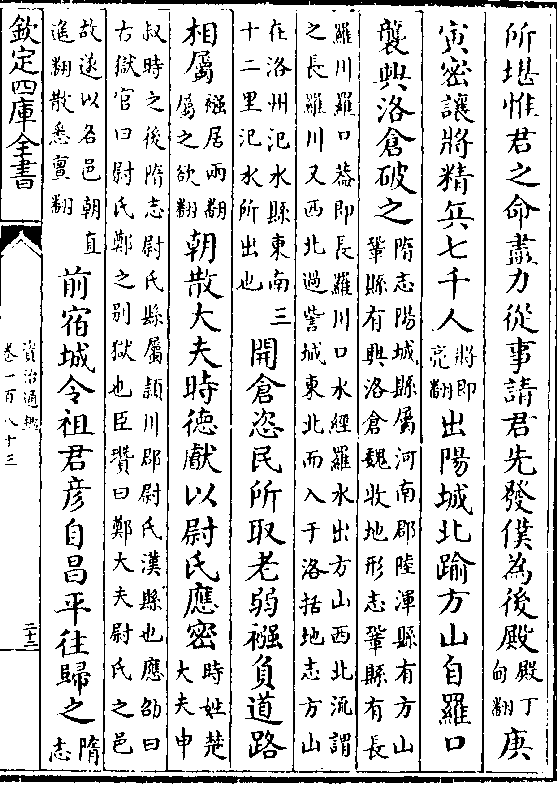 所堪惟君之命盡力從事請君先發僕為後殿
殿丁
甸翻
庚
寅密讓將精兵七千人
將即
亮翻
出陽城北踰方山自羅口
襲興洛倉破之
隋志陽城縣屬河南郡陸渾縣有方山
鞏縣有興洛倉魏收地形志鞏縣有長
羅川羅口葢即長羅川口水經羅水出方山西北流謂
之長羅川又西北過訾城東北而入于洛括地志方山
在洛州汜水縣東南三
十二里汜水所出也
開倉恣民所取老弱襁負道路
相屬
襁居兩翻
屬之欲翻
朝散大夫時德獻以尉氏應密
時姓楚
大夫申
叔時之後隋志尉氏縣屬潁川郡尉氏漢縣也應劭曰
古獄官曰尉氏鄭之別獄也臣瓚曰鄭大夫尉氏之邑
故遂以名邑朝直
遥翻散悉亶翻
前宿城令祖君彦自昌平往歸之
隋
志
欽定四庫全書
資治通鑑
卷一百八十三
二十三